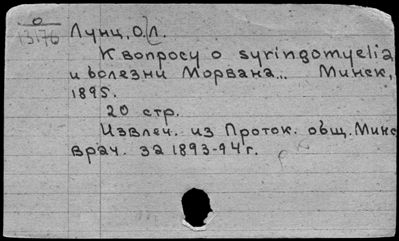 0
13176
Лунц, О. Л.
К вопросу о syringomyelia
и болезни Морвана... Минск,
1895.
20 стр.
Извлеч. из Проток. общ. Минс
врач. за 1893-94 г.